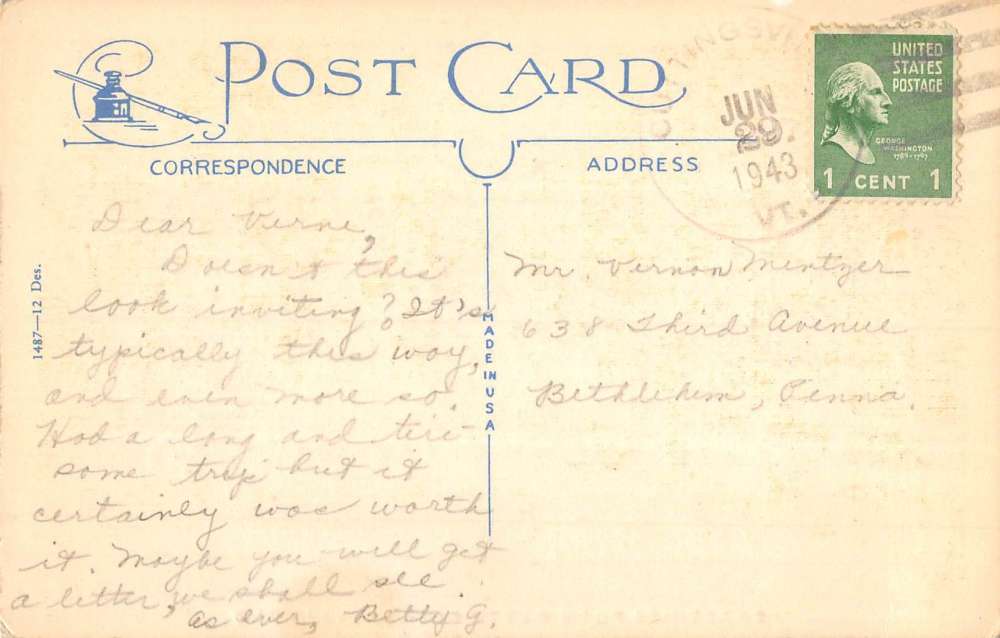 POST CARD
CORRESPONDENCE
ADDRESS
CUTTINGSVILLE
JUN
29.
1943
VT.
UNITED
STATES
POSTAGE
GEORGE
WASHINGTON
1789-1797
1 CENT 1
Dear Verne,
Doesn't this
look inviting? It's
typically this way,
and even more so.
Had a long and tire-
some trip but it
certainly was worth
it. Maybe you will get
a letter, we shall see.
as ever, Betty G.
1487—12 Des.
MADE IN USA
Mr. Vernon Mentzer
638 Third Avenue
Bethlehem, Penna.